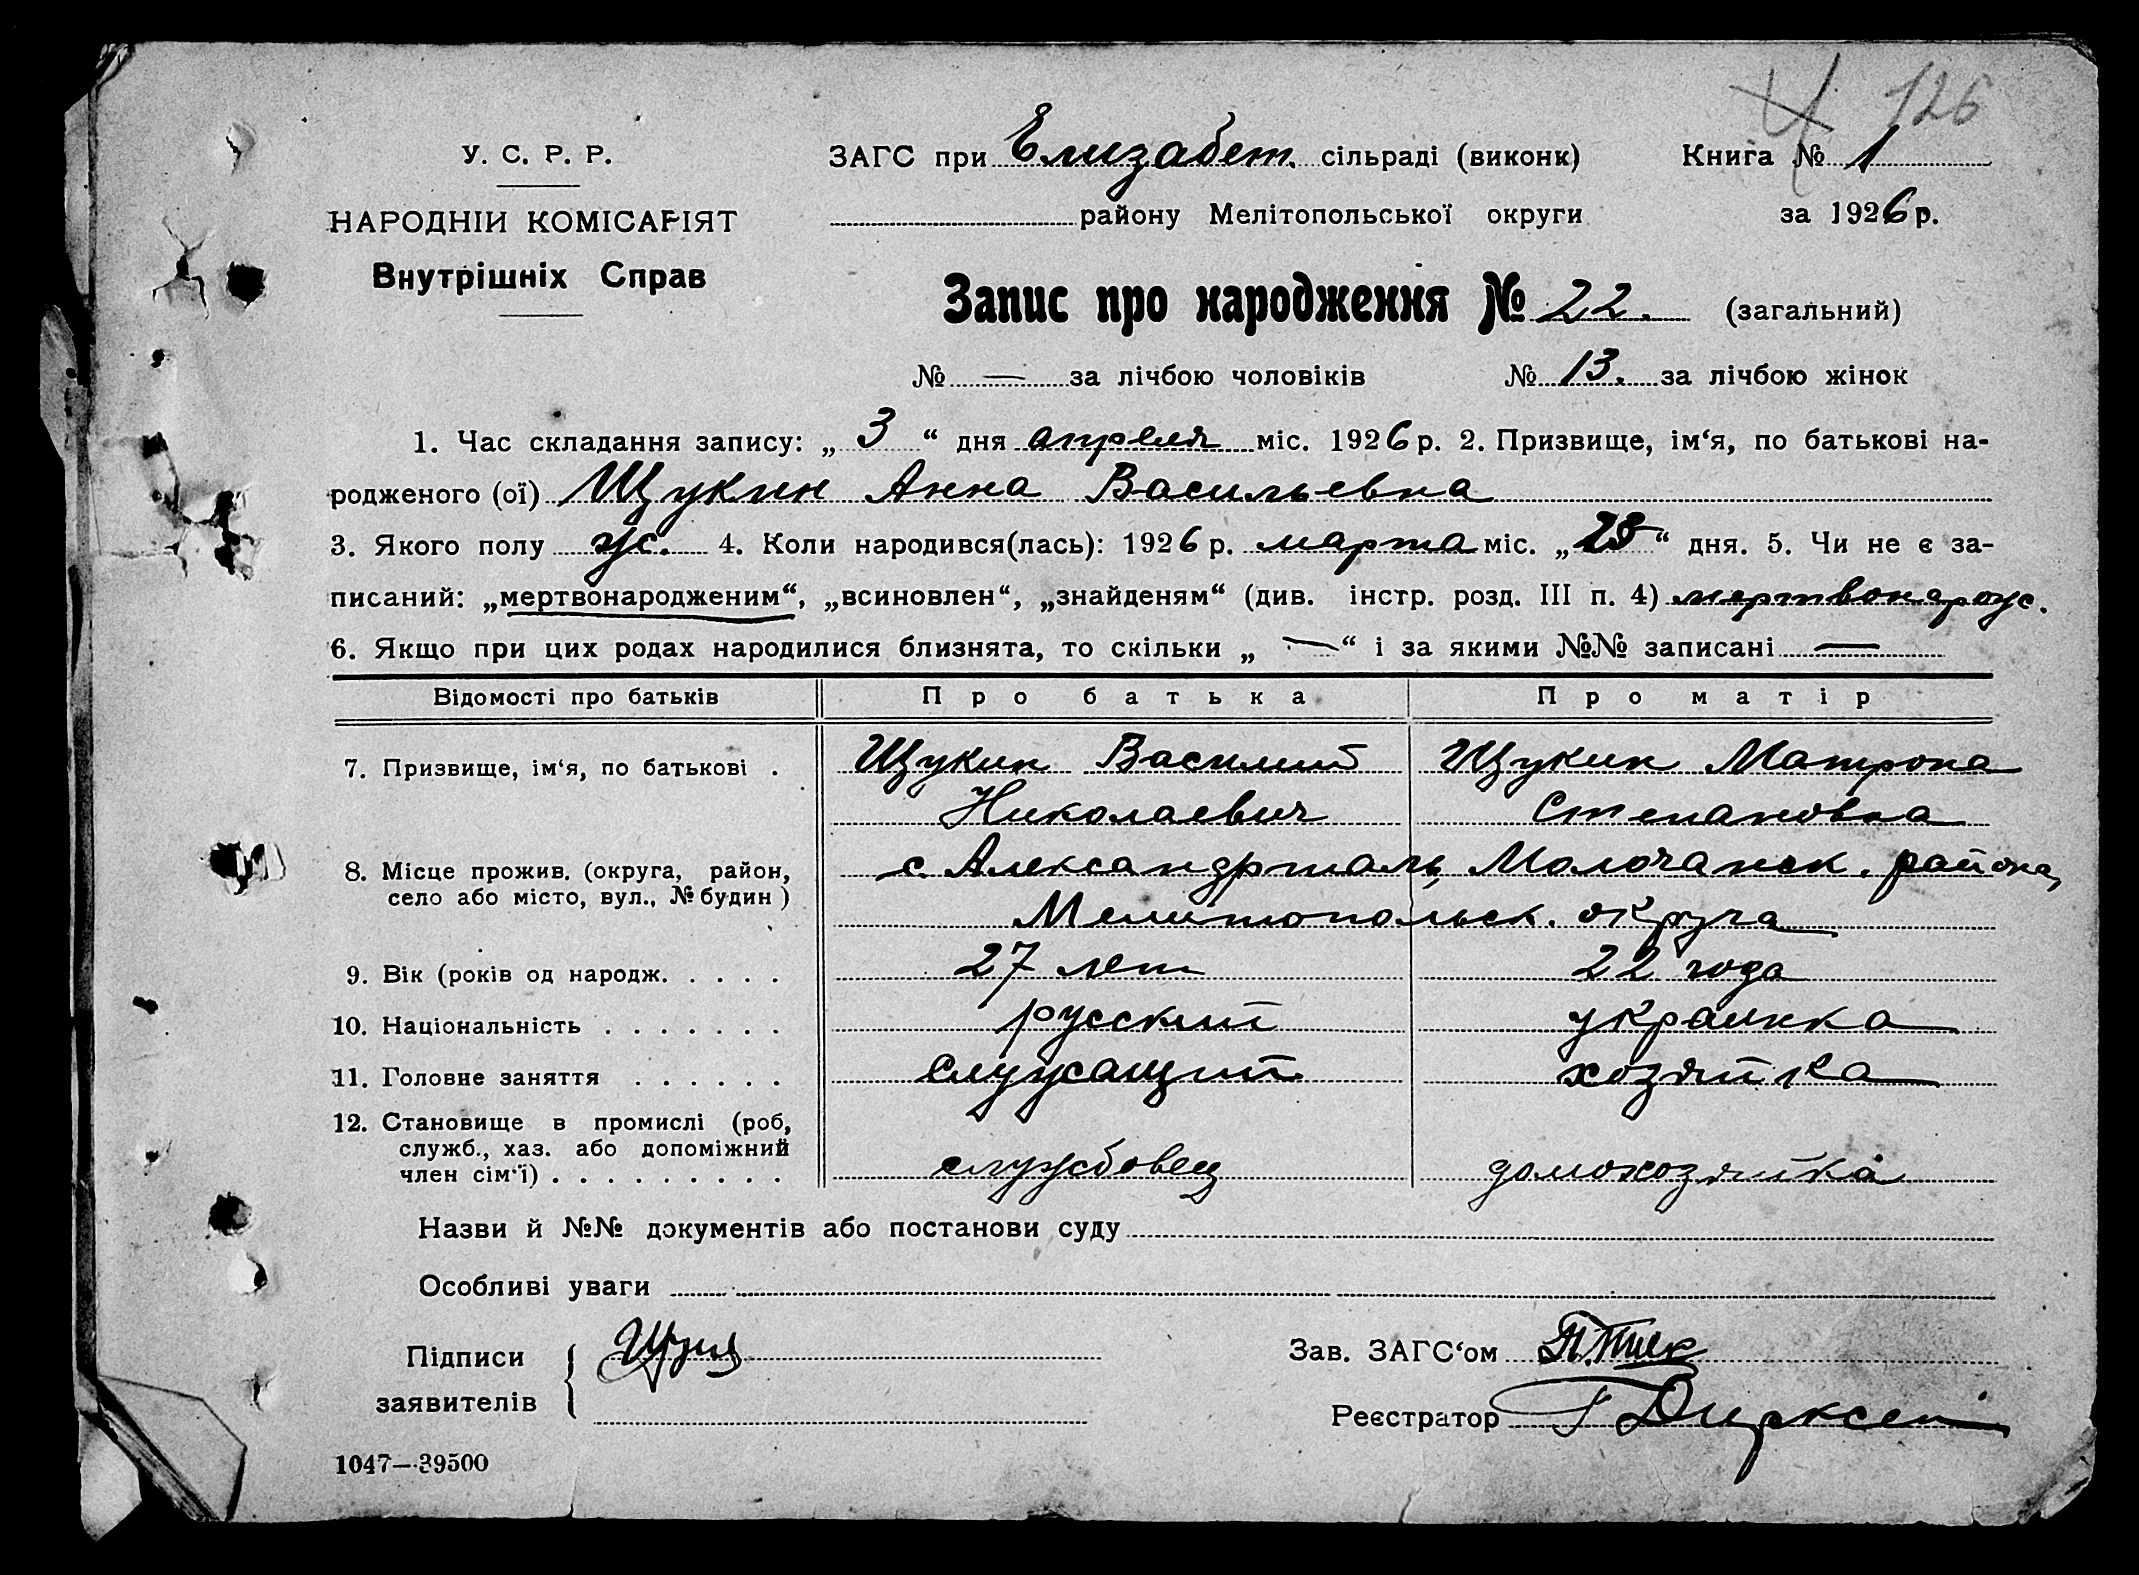 126
У. С. Р. Р.
ЗАГС при Елизабет. сільраді (виконк)
Книга № 1
НАРОДНІЙ КОМІСАРІЯТ
району Мелітопольської округи
за 1926 р.
Внутрішніх Справ
Запис про народження № 22. (загальний)
№ — за лічбою чоловіків
№ 13. за лічбою жінок
1. Час складання запису: „ 3 “ дня апреля міс. 1926 р. 2. Призвище, ім‘я, по батькові на-
родженого (ої) Щукин Анна Васильевна
3. Якого полу ж. 4. Коли народився(лась): 1926 р. марта міс. „ “ дня. 5. Чи не є за-
писаний: „мертвонародженим“, „всиновлен“, „знайденям“ (див. інстр. розд. III п. 4) мертворож.
6. Якщо при цих родах народилися близнята, то скільки „ — “ і за якими №№ записані —
Відомості про батьків
Про батька
Про матір
7. Призвище, ім‘я, по батькові .
Щукин Василий
Щукин Матрона
Николаевич
Степановна
8. Місце прожив. (округа, район,
село або місто, вул., № будин )
с. Александрталь, Молочанск. района,
Мелитопольск. округа
9. Вік (років од народж. . . . .
27 лет
22 года
10. Національність . . . . . . .
русский
украинка
11. Головне заняття . . . . . .
служащий
хозяйка
12. Становище в промислі (роб,
служб., хаз. або допоміжний
член сім‘ї) . . . . . . . . .
службовец
домохозяйка
Назви й №№ документів або постанови суду
Особливі уваги
Підписи
заявителів
Зав. ЗАГС‘ом
Реєстратор Г Дирксен
1047—39500